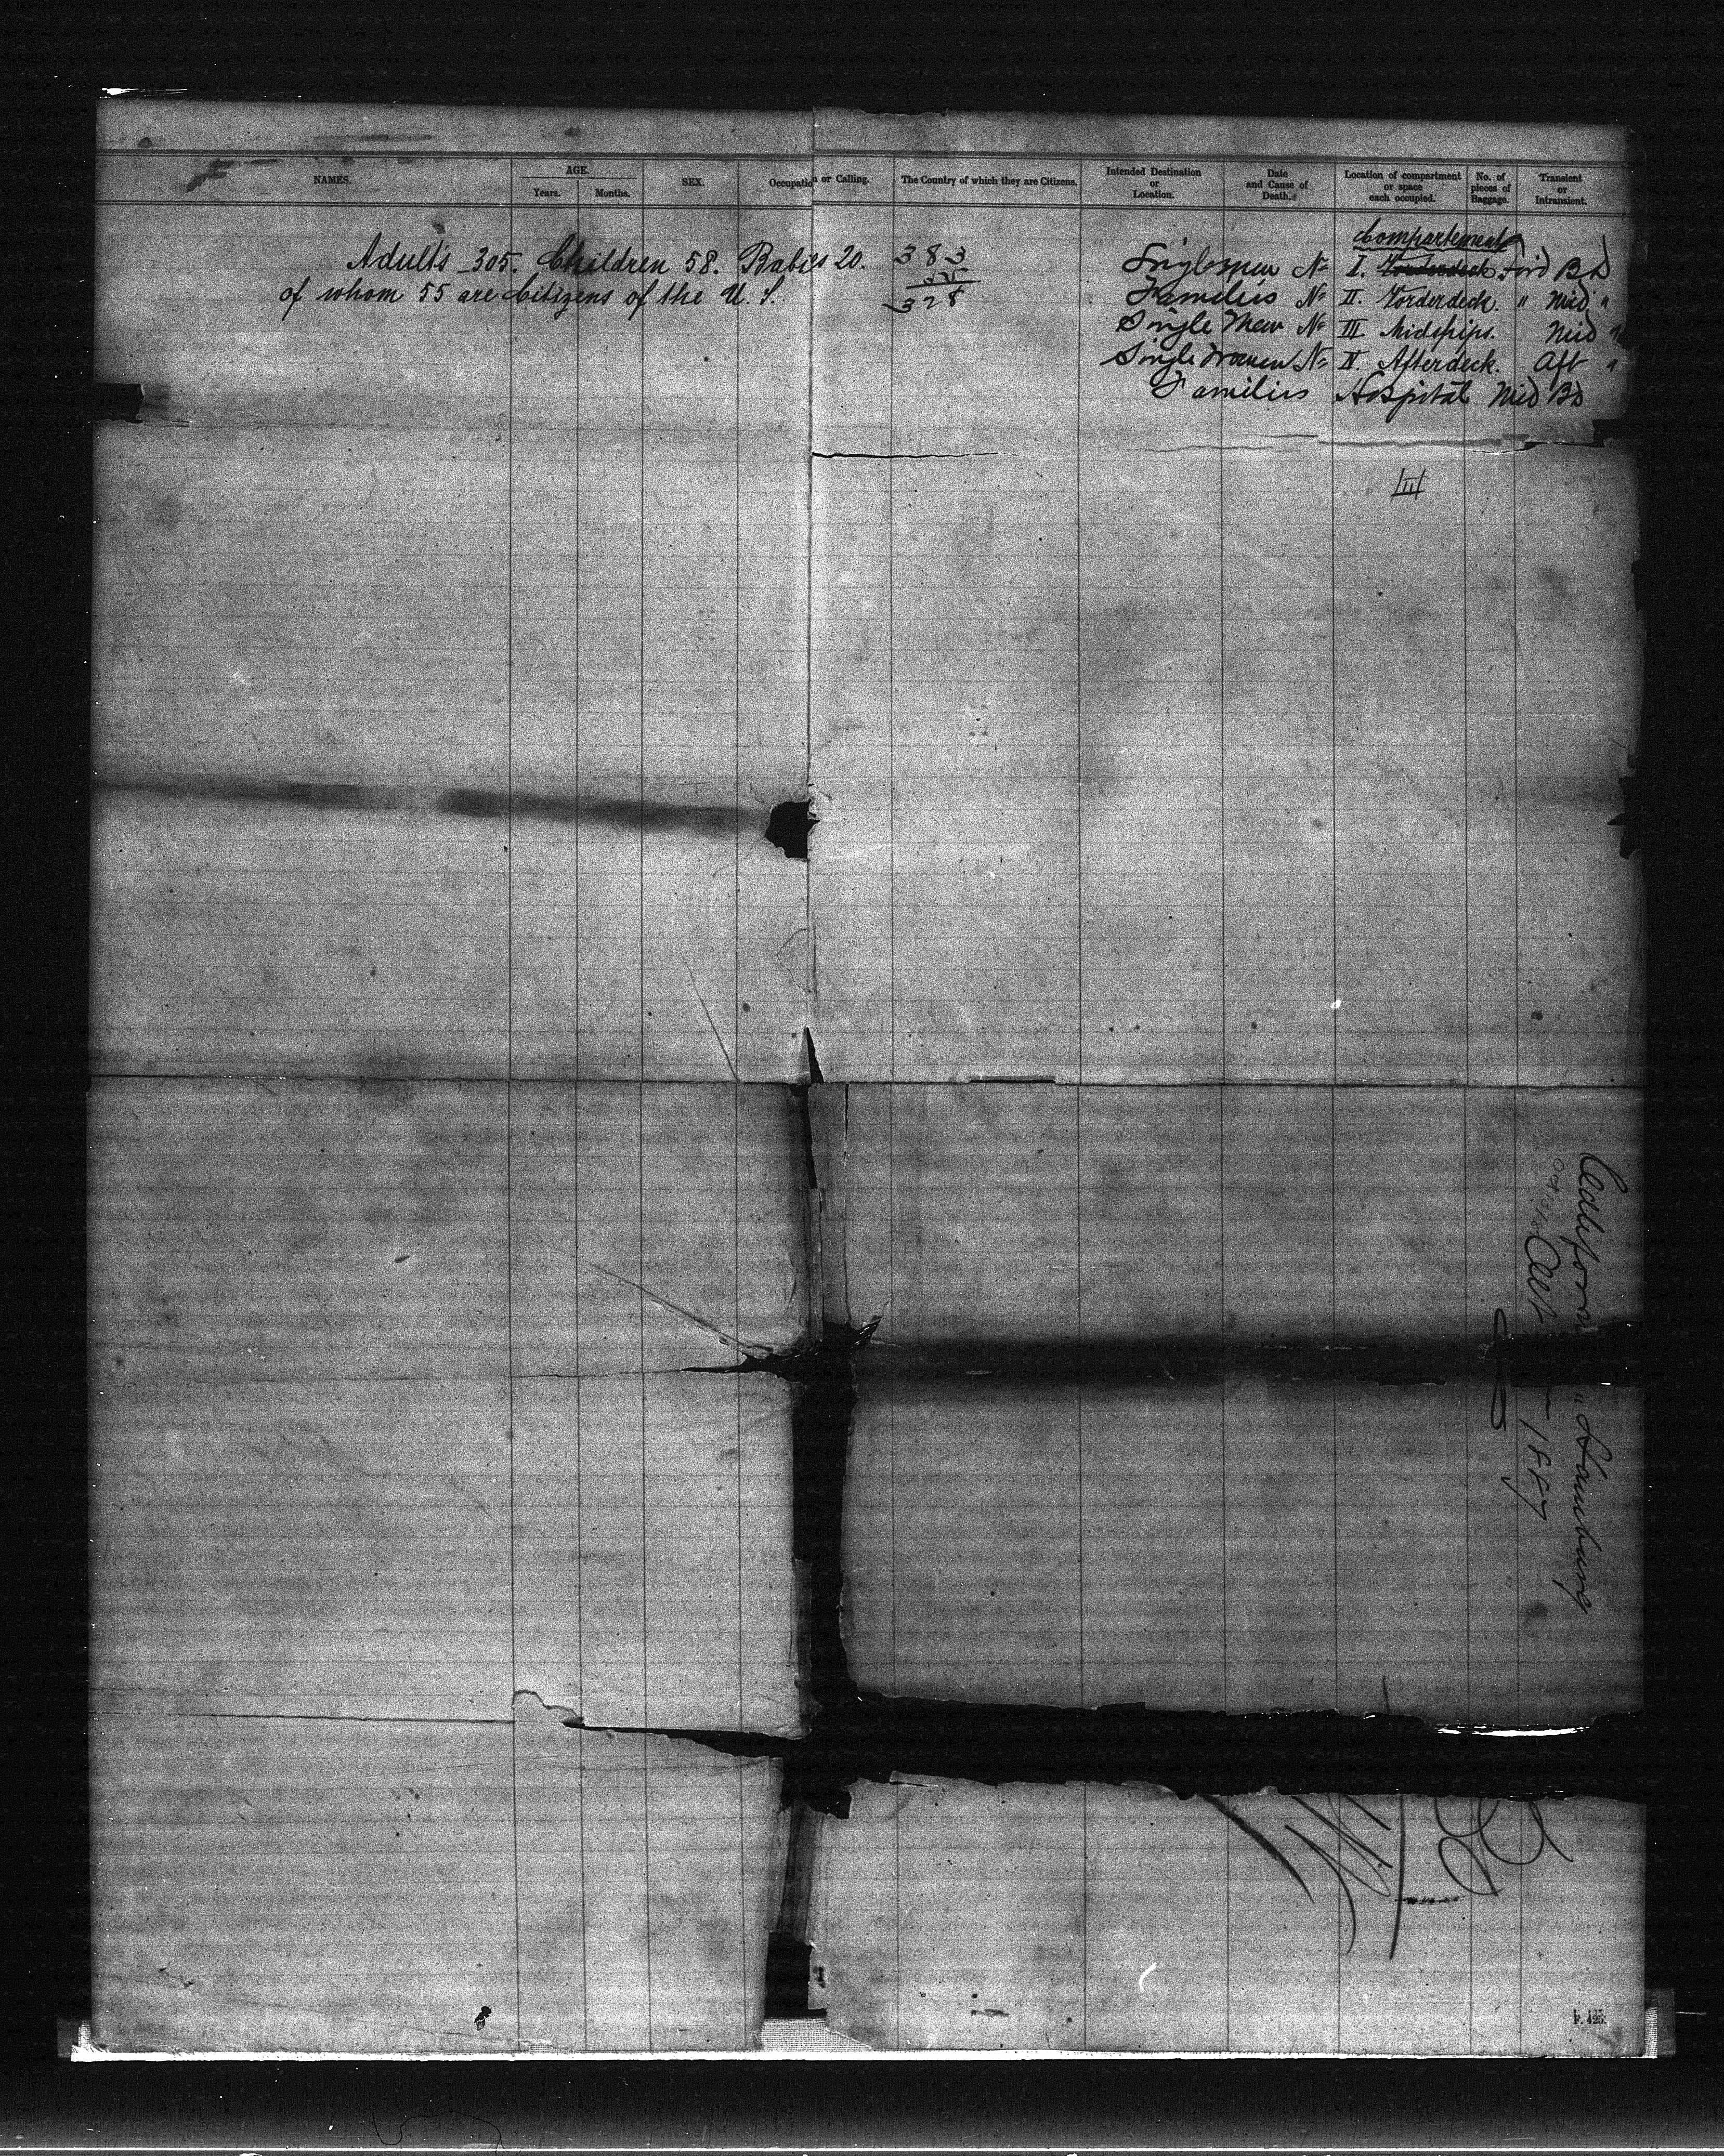 NAMES. AGE. Years. Months. SEX. Occupation or Calling. The Country of which they are Citizens. Intended Destination or Location. Date and Cause of Death. Location of compartment or space each occupied. No. of pieces of Baggage. Transient or Intransient.
Compartement
Adults 305. Children 58. Babies 20. 383
55
of whom 55 are Citizens of the U. S. 328
Singlemen No I. Vorderdeck Fwd Bd
Families No II. Vorderdeck. " Mid "
Single Men No III Midships. Mid "
Single women No II. Afterdeck. Aft "
Families Hospital Mid Bd
III
California "Hamburg
Oct 1887
F. 425.